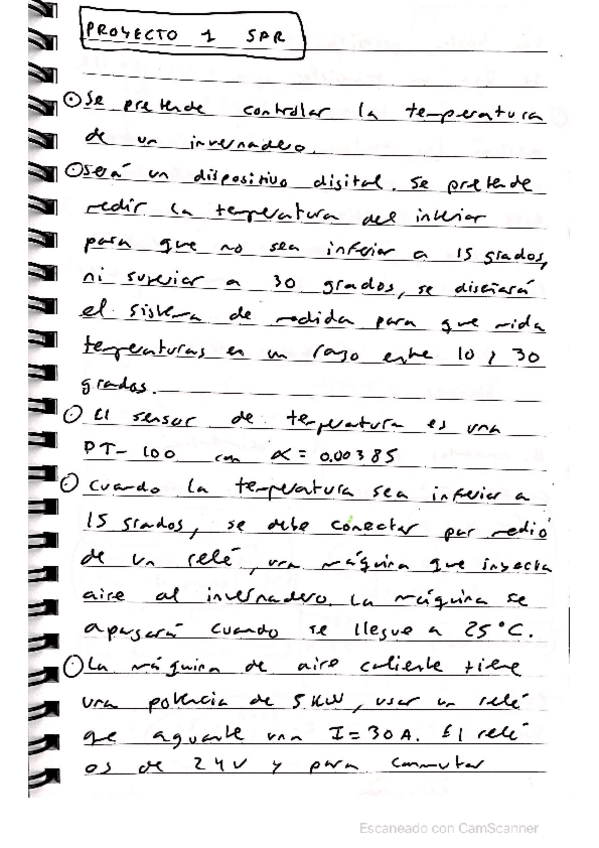 PROYECTO 1 SPR
Se pretende controlar la temperatura
de un invernadero.
Será un dispositivo digital. Se pretende
medir la temperatura del interior
para que no sea inferior a 15 grados,
ni superior a 30 grados, se diseñará
el sistema de medida para que mida
temperaturas en un rango entre 10 y 30
grados.
El sensor de temperatura es una
PT-100 con α = 0.00385
cuando la temperatura sea inferior a
15 grados, se debe conectar por medio
de un relé, una máquina que inyecta
aire al invernadero. La máquina se
apagará cuando se llegue a 25°C.
La máquina de aire caliente tiene
una potencia de 5 KW, usar un relé
que aguante una I=30A. El relé
es de 24V y para conmutar
Escaneado con CamScanner